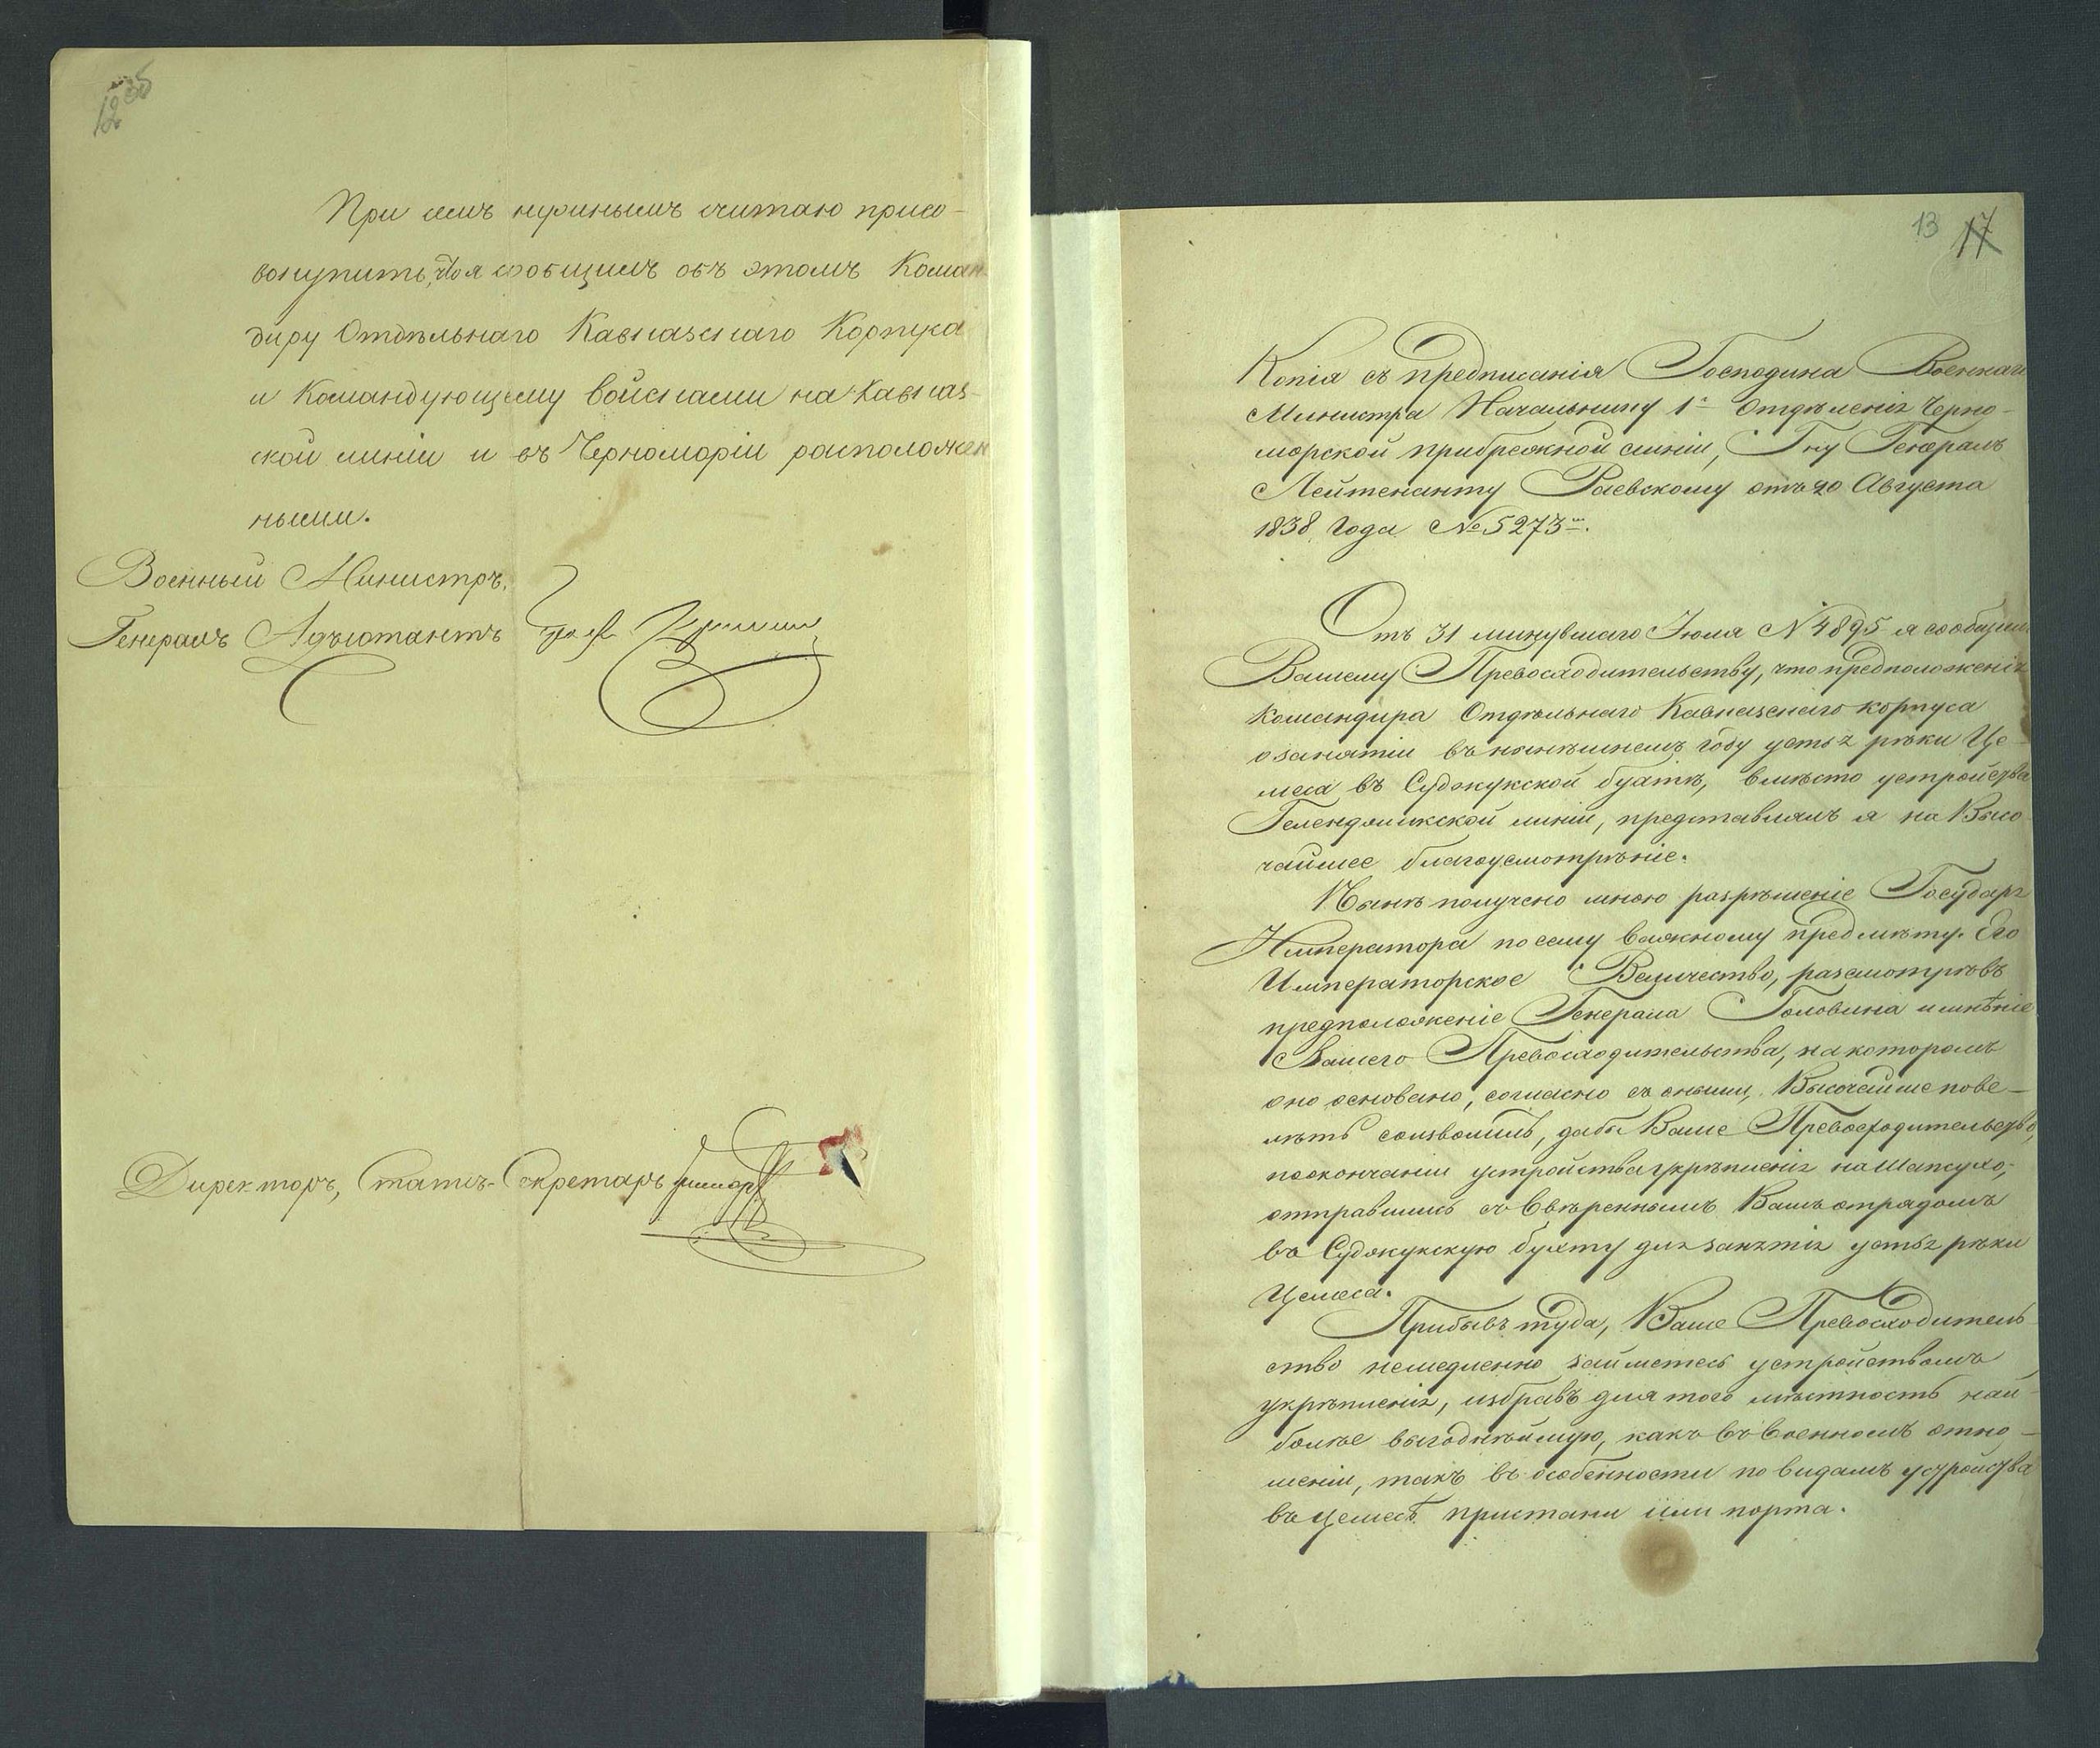 12об
При семъ нужнымъ считаю присо-
вокупить, что я сообщилъ объ этомъ Коман-
диру Отдѣльнаго Кавказскаго Корпуса
и Командующему войсками на Кавказ-
ской линіи и въ Черноморіи расположен
ными.
Военный Министръ,
Генералъ Адъютантъ Графъ
Директоръ, Статсъ-Секретарь
13 17
Копія съ предписанія Господина Военнаго
Министра Начальнику 1го Отдѣленія Черно-
морской прибрежной линіи, Гну Генералъ
Лейтенанту Раевскому отъ 20 Августа
1838 Года № 5273й.
Отъ 31 минувшаго Іюля № 4895 я сообщилъ
Вашему Превосходительству, что предположенія
Командира Отдѣльнаго Кавказскаго корпуса
о занятіи въ нынѣшнемъ году устья рѣки Це-
меса въ Суджукской бухтѣ, вмѣсто устройства
Геленджикской линіи, представлялъ я на Высо
чайшее благоусмотрѣніе.
Нынѣ получено мною разрѣшеніе Государя
Императора по сему важному предмѣту. Его
Императорское Величество, разсмотрѣвъ
предположеніе Генерала Головина и мнѣніе
Вашего Превосходительства, на которомъ
оно основано, согласно съ онымъ, Высочайше пове-
лѣть соизволилъ, дабы Ваше Превосходительство,
по окончаніи устройства укрѣпленія на Шапсухо,
отправились съ ввѣреннымъ Вамъ отрядомъ
въ Суджукскую бухту для занятія устья рѣки
Цемеса.
Прибывъ туда, Ваше Превосходитель
ство немедленно займетесь устройствомъ
укрѣпленія, избравъ для того мѣстность наи-
болѣе выгоднѣйшую, какъ въ военномъ отно-
шеніи, такъ въ особенности по видамъ устройства
въ Цемесѣ пристани или порта.